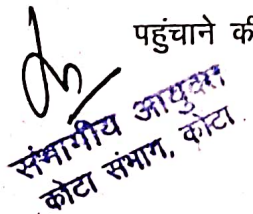 पहुंचाने की
संभागीय आयुक्त
कोटा संभाग, कोटा